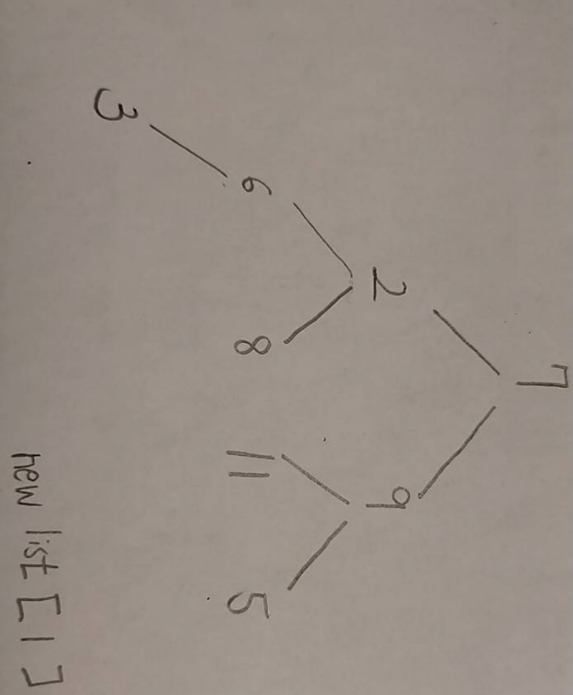 7
2 9
6 8 11 5
3
new list [1]